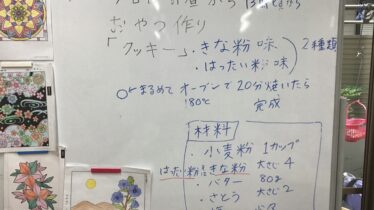 おやつ作り
「クッキー」・きな粉味
・はったい粉味
2種類
まるめて オーブンで20分焼いたら
180℃
完成
材料
・小麦粉 1カップ
はったい粉 きな粉 大さじ4
・バター 80g
・さとう 大さじ2